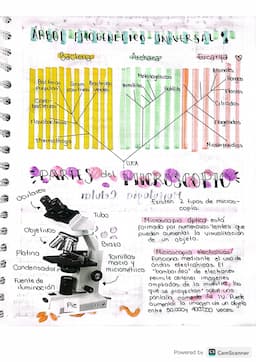 ÁRBOL FILOGENÉTICO UNIVERSAL
Bacterias Archaeas Eucarya
Animales
Hongos
Plantas
Ciliados
Flagelados
Microsporidios
Metanogénicos
Termófilos Halófilos
Bacterias Gram Bacterias
púrpuras positivas verdes
Cianobacterias
Flavobacterias
Thermotogales
LUCA
PARTES del MICROSCOPIO
Existen 2 tipos de microscopio:
Oculares
Tubo
Objetivos
Brazo
Platina
Tornillos
macro y
micrométrico
Condensador
Fuente de
iluminación
Pie
Microscopio óptico: está
formado por numerosas lentes que
pueden aumentar la visualización
de un objeto.
Microscopio electrónico:
Funciona mediante el uso de
ondas electrónicas. El
"bombardeo" de electrones
permite obtener imágenes
ampliadas de la muestra, las
que se proyectan sobre una
pantalla Puede
aumentar la imagen de un objeto
entre 50.000 y 400.000 veces.
Powered by CS CamScanner